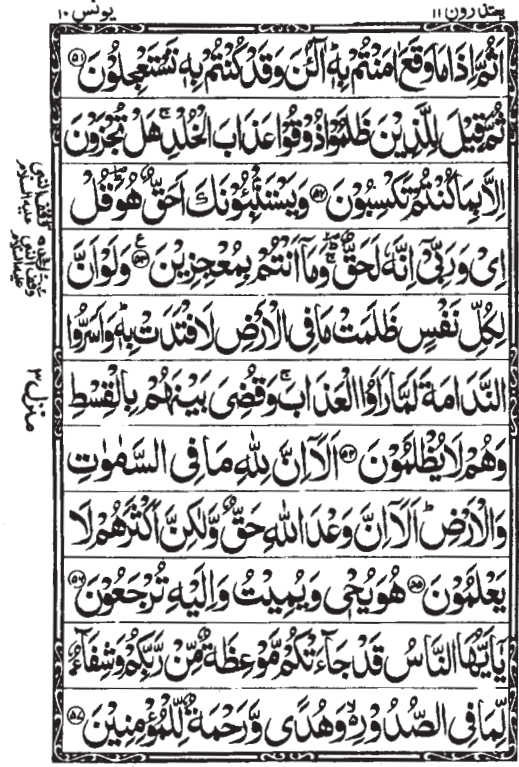 يعتذرون ١١
يونس ١٠
اَثُمَّ اِذَا مَا وَقَعَ اٰمَنْتُمْ بِهٖ ؕ آٰلْـٰٔنَ وَقَدْ كُنْتُمْ بِهٖ تَسْتَعْجِلُوْنَ ﴿۵۱﴾
ثُمَّ قِيْلَ لِلَّذِيْنَ ظَلَمُوْا ذُوْقُوْا عَذَابَ الْخُلْدِ ۚ هَلْ تُجْزَوْنَ
اِلَّا بِمَا كُنْتُمْ تَكْسِبُوْنَ ﴿۵۲﴾ وَيَسْتَنْۢبِـُٔوْنَكَ اَحَقٌّ هُوَ ؕ قُلْ
اِيْ وَرَبِّيْۤ اِنَّهٗ لَحَقٌّ ؔۚ وَمَاۤ اَنْتُمْ بِمُعْجِزِيْنَ ﴿۵۳﴾ ع وَلَوْ اَنَّ
لِكُلِّ نَفْسٍ ظَلَمَتْ مَا فِي الْاَرْضِ لَافْتَدَتْ بِهٖ ؕ وَاَسَرُّوا
النَّدَامَةَ لَمَّا رَاَوُا الْعَذَابَ ۚ وَقُضِيَ بَيْنَهُمْ بِالْقِسْطِ
وَهُمْ لَا يُظْلَمُوْنَ ﴿۵۴﴾ اَلَاۤ اِنَّ لِلّٰهِ مَا فِي السَّمٰوٰتِ
وَالْاَرْضِ ؕ اَلَاۤ اِنَّ وَعْدَ اللّٰهِ حَقٌّ وَّلٰكِنَّ اَكْثَرَهُمْ لَا
يَعْلَمُوْنَ ﴿۵۵﴾ هُوَ يُحْيٖ وَيُمِيْتُ وَاِلَيْهِ تُرْجَعُوْنَ ﴿۵۶﴾
يٰۤاَيُّهَا النَّاسُ قَدْ جَآءَتْكُمْ مَّوْعِظَةٌ مِّنْ رَّبِّكُمْ وَشِفَآءٌ
لِّمَا فِي الصُّدُوْرِ ۙ وَهُدًى وَّرَحْمَةٌ لِّلْمُؤْمِنِيْنَ ﴿۵۷﴾
منزل ۳